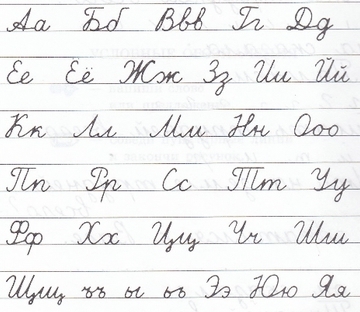 Аа Бб Ввв Гг Дд
Ее Ёё Жж Зз Ии Йй
Кк Лл Мм Нн Ооо
Пп Рр Сс Тт Уу
Фф Хх Цц Чч Шш
Щщ ъъ ы ьь Ээ Юю Яя